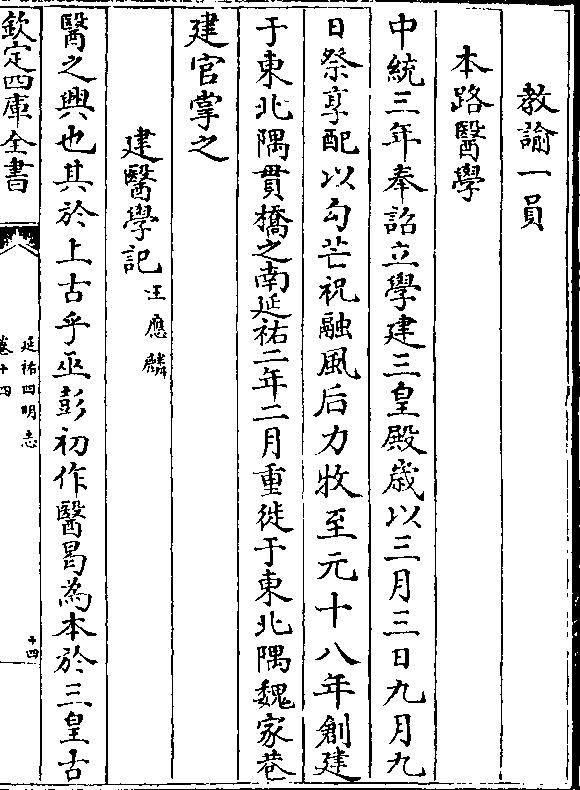 教諭一員
本路醫學
中統三年奉詔立學建三皇殿歳以三月三日九月九
日祭享配以勾芒祝融風后力牧至元十八年創建
于東北隅貫橋之南延祐二年二月重徙于東北隅魏家巷
建官掌之
建醫學記王應麟
醫之興也其於上古乎巫彭初作醫曷為本於三皇古
欽定四庫全書
延祐四明志
卷十四
十四